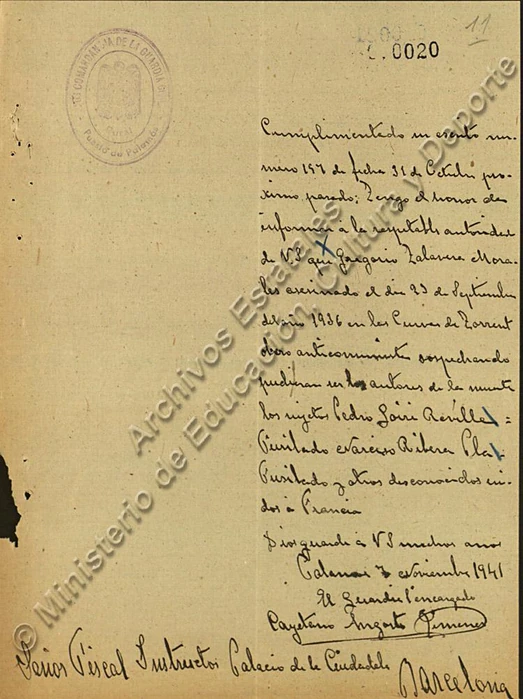 11
0020
COMANDANCIA DE LA GUARDIA CIVIL
Puesto de Palamós
Cumplimentado su escrito nu-
mero 157 de fecha 31 de Octubre pro-
ximo pasado; Tengo el honor de
informar á la respetable autoridad
de V.S. que Gregorio Talavera Mora-
les asesinado el dia 23 de Septiembre
del año 1936 en las Curvas de Torrent
obero anticomunista sospechando
pudieran ser los autores de la muerte
los sujetos Pedro Revilla =
Fusilado Narciso Ribera Pla
Fusilado y otros desconocidos
dos á Francia
Dios guarde á VS muchos años
Noviembre 1941
El Guardia encargado
Cayetano
Señor Fiscal Instructor Palacio de la Ciudadela
Barcelona
© Ministerio de Educación, Cultura y Deporte
Archivos Estatales